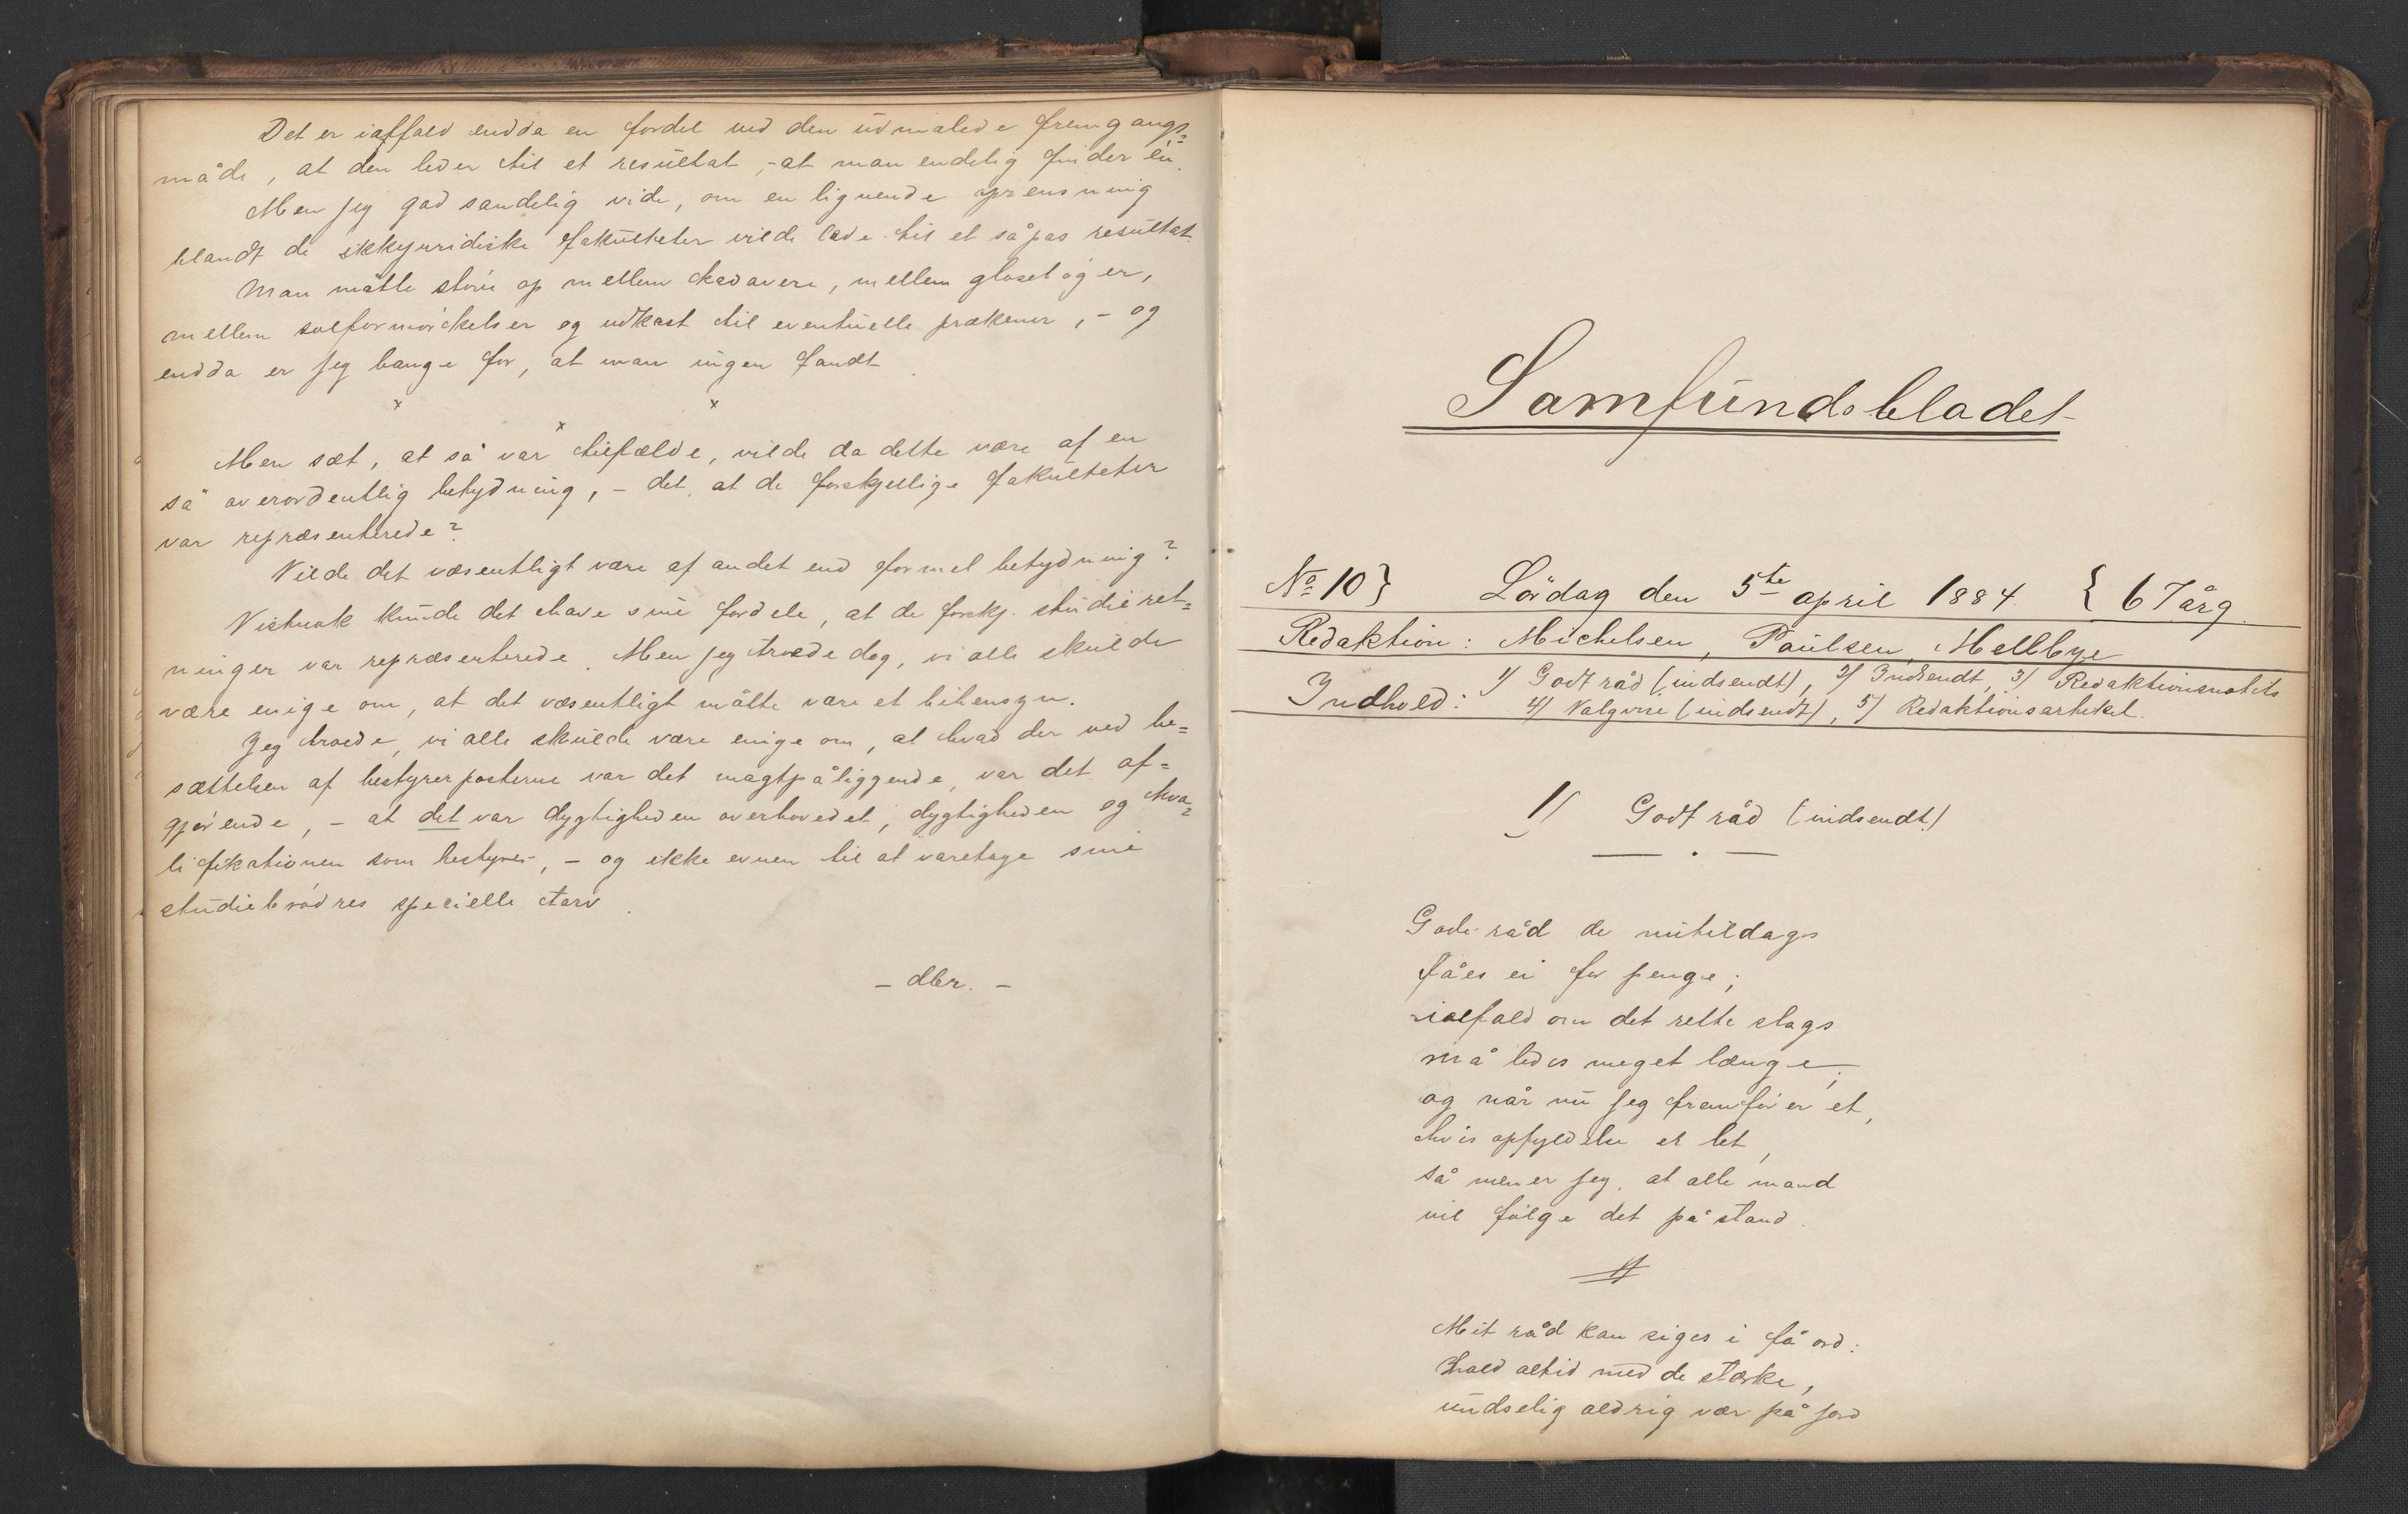 Det er iaffald endda en fordel ved den udmalede fremgangs=
måde, at den leder til et resultat, - at man endelig finder én.
Men jeg gad sandelig vide, om en lignende oprensning
blandt de ikkejuridiske fakulteter vilde lede til et såpas resultat.
Man måtte støve op mellem kadavere, mellem gloseløger,
mellem solformørkelser og udkast til eventuelle prækener, - og
endda er jeg bange for, at man ingen fandt.
x x x
Men sæt, at så var tilfælde, vilde da dette være af en
så overordentlig betydning, - det, at de forskjellige fakulteter
var repræsenterede?
Vilde det væsentligt være af andet end formel betydning?
Vistnok kunde det have sine fordele, at de forskj. studieret=
ninger var repræsenterede. Men jeg troede dog, vi alle skulde
være enige om, at det væsentligt måtte være et bihensyn.
Jeg troede, vi alle skulde være enige om, at hvad der ved be=
sættelsen af bestyrerposterne var det magtpåliggende, var det af=
gjørende, - at det var dygtigheden overhovedet, dygtigheden og kva=
lifikationen som bestyrer, - og ikke evnen til at varetage sine
studiebrødres specielle tarv.
- dbr. -
Samfundsbladet
No 10} Lördag den 5te april 1884 { 6 Tårg.
Redaktion: Michelsen, Paulsen, Mellbye
Indhold: 1) Godt råd (indsendt), 2) Indsendt, 3) Redaktionsnotits
4) Valgvise (indsendt), 5) Redaktionsartikel.
1) Godt råd (indsendt)
Gode råd de nutildags
fåes ei for penge;
ialfald om det rette slags
må ledes meget længe;
og når nu jeg fremfører et,
hvis opfyldelse er let,
så mener jeg, at alle mand
vil følge det på stand.
Mit råd kan siges i få ord:
Hold altid med de stærke,
undselig aldrig vær på jord